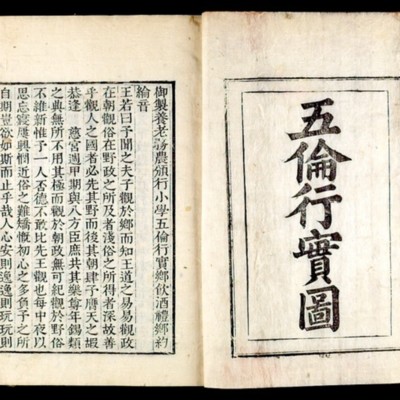 五倫行實圖
御製養老務農頒行小學五倫行實鄕飮酒禮鄕約
綸音
王若曰予聞之夫子觀於鄕而知王道之易易觀政
在朝觀俗在野政之所及者淺俗之所得者深故善
乎觀人之國者必先其野而後其朝肆予膺天之嘏
恭逢 慈宮週甲期與八方臣庶共其樂尊年錫類
之典無所不用其極而觀於朝政無可紀觀於野俗
不維新惟予一人否德不敢比先王觀也每中夜以
思忘寢屢興憫近俗之難矯慨初心之多負予之所
自期豈欲如斯而止乎哉人心安則逸逸則玩玩則